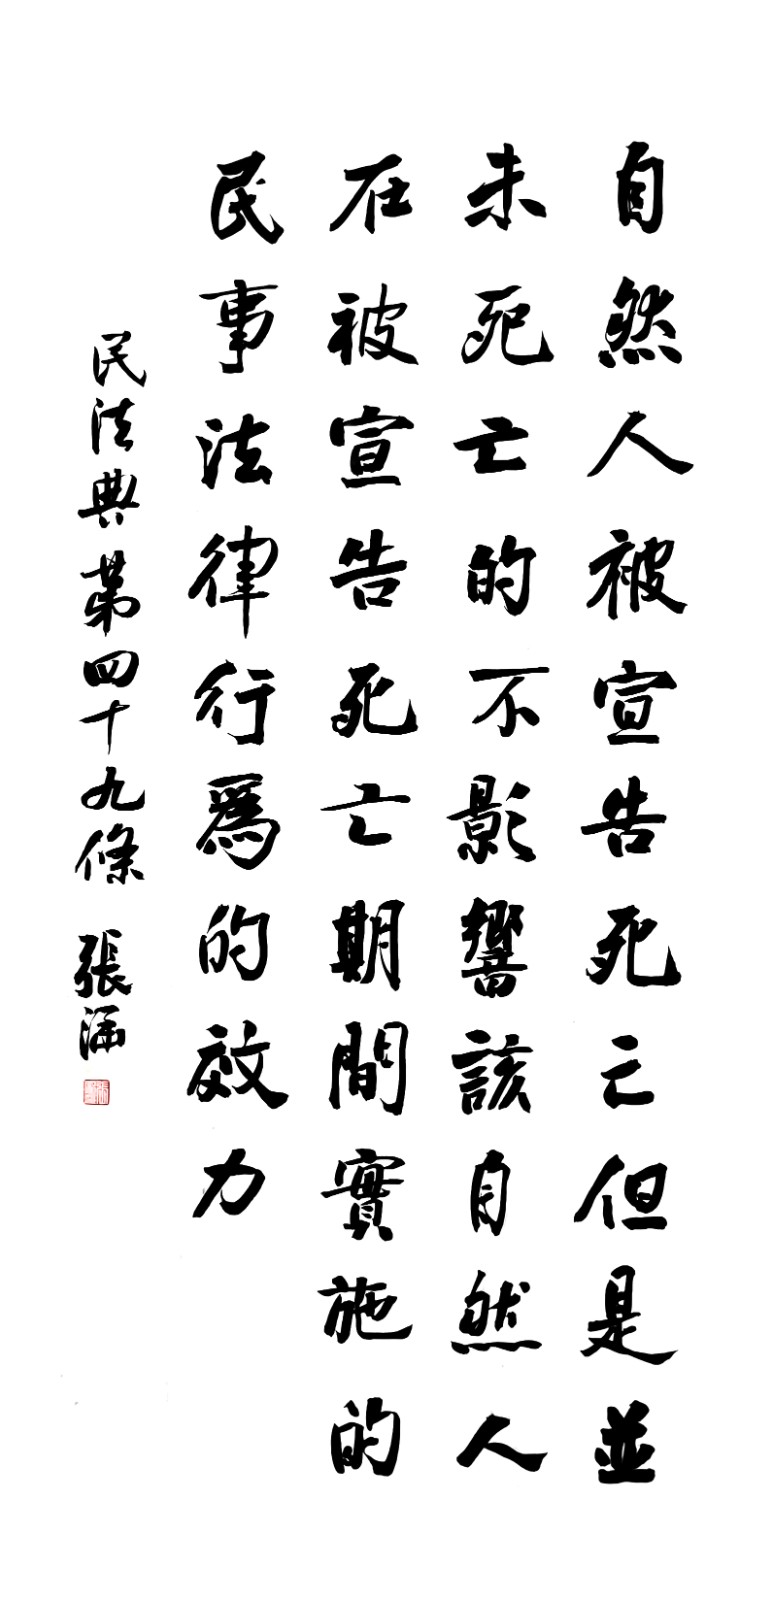 自然人被宣告死亡但是並
未死亡的不影響該自然人
在被宣告死亡期間實施的
民事法律行爲的效力
民法典第四十九條 張